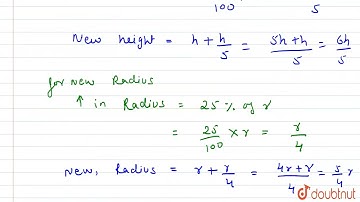 100 5
New height = h + h/5 = 5h+h/5 = 6h/5
for new Radius
↑ in Radius = 25 % of r
= 25/100 × r = r/4
New, Radius = r + r/4 = 4r+r/4 = 5/4 r
doubtnut